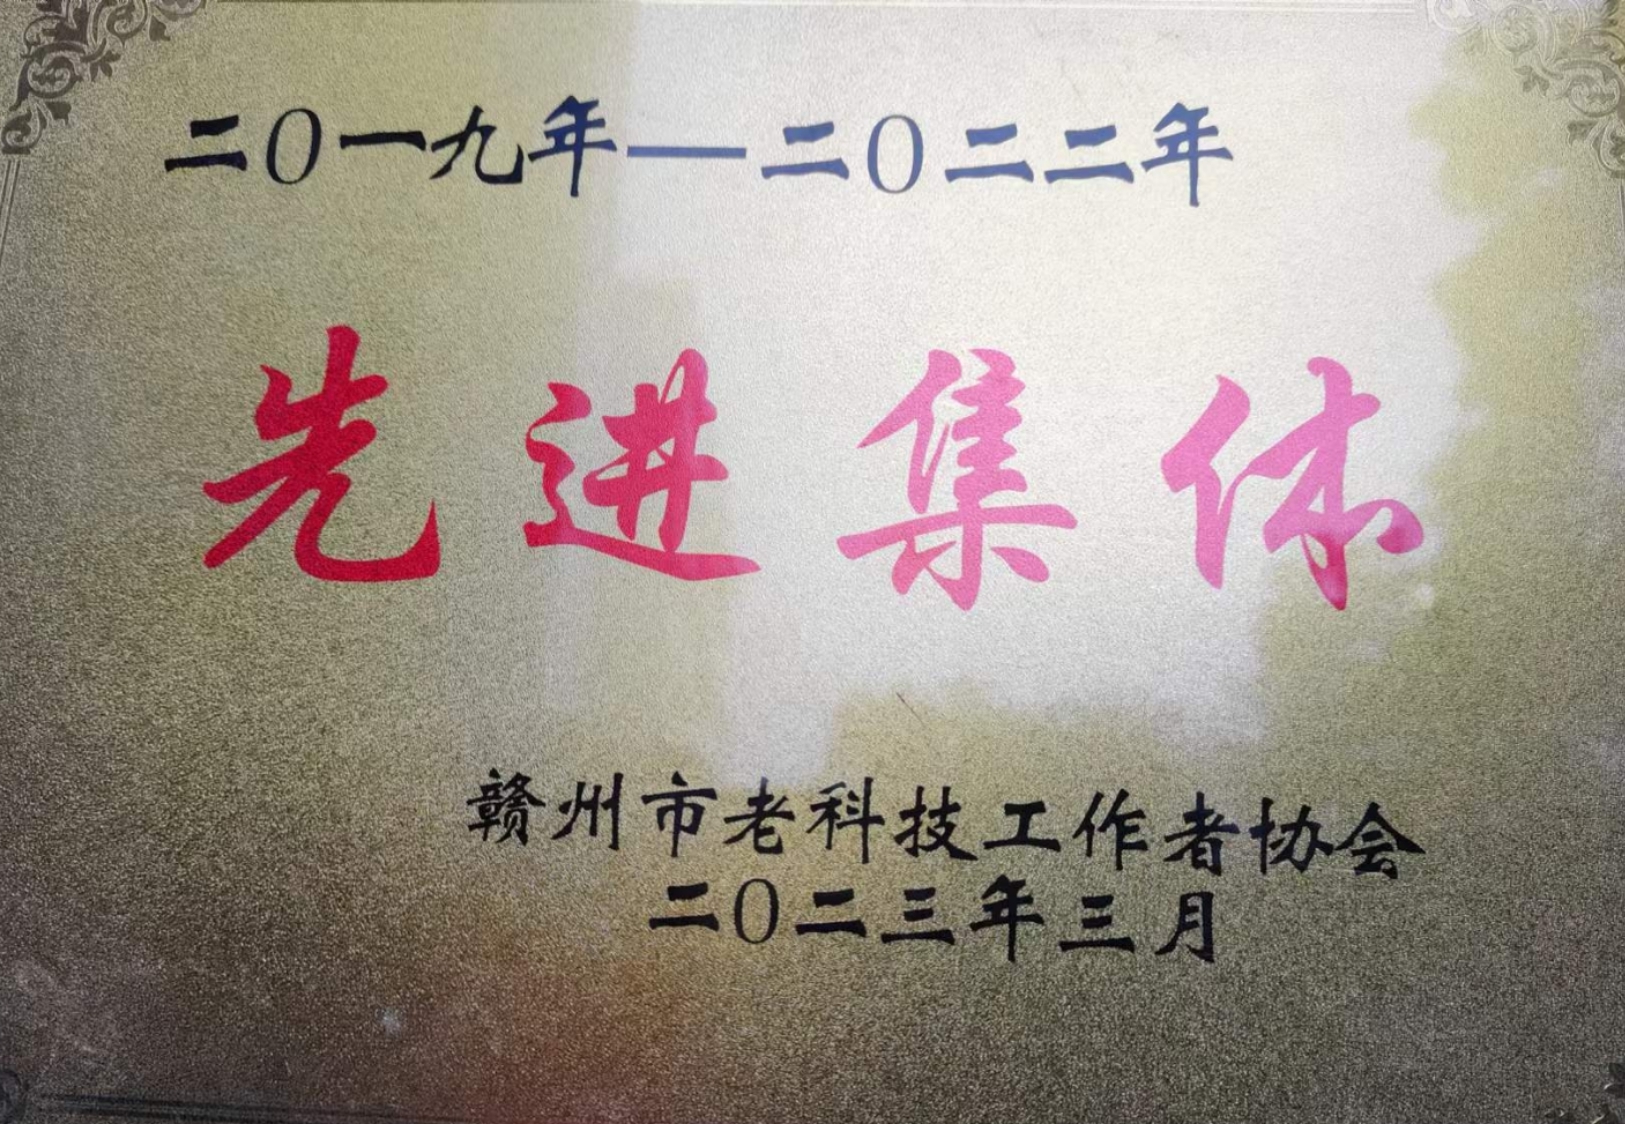 二0一九年—二0二二年
先进集体
赣州市老科技工作者协会
二0二三年三月